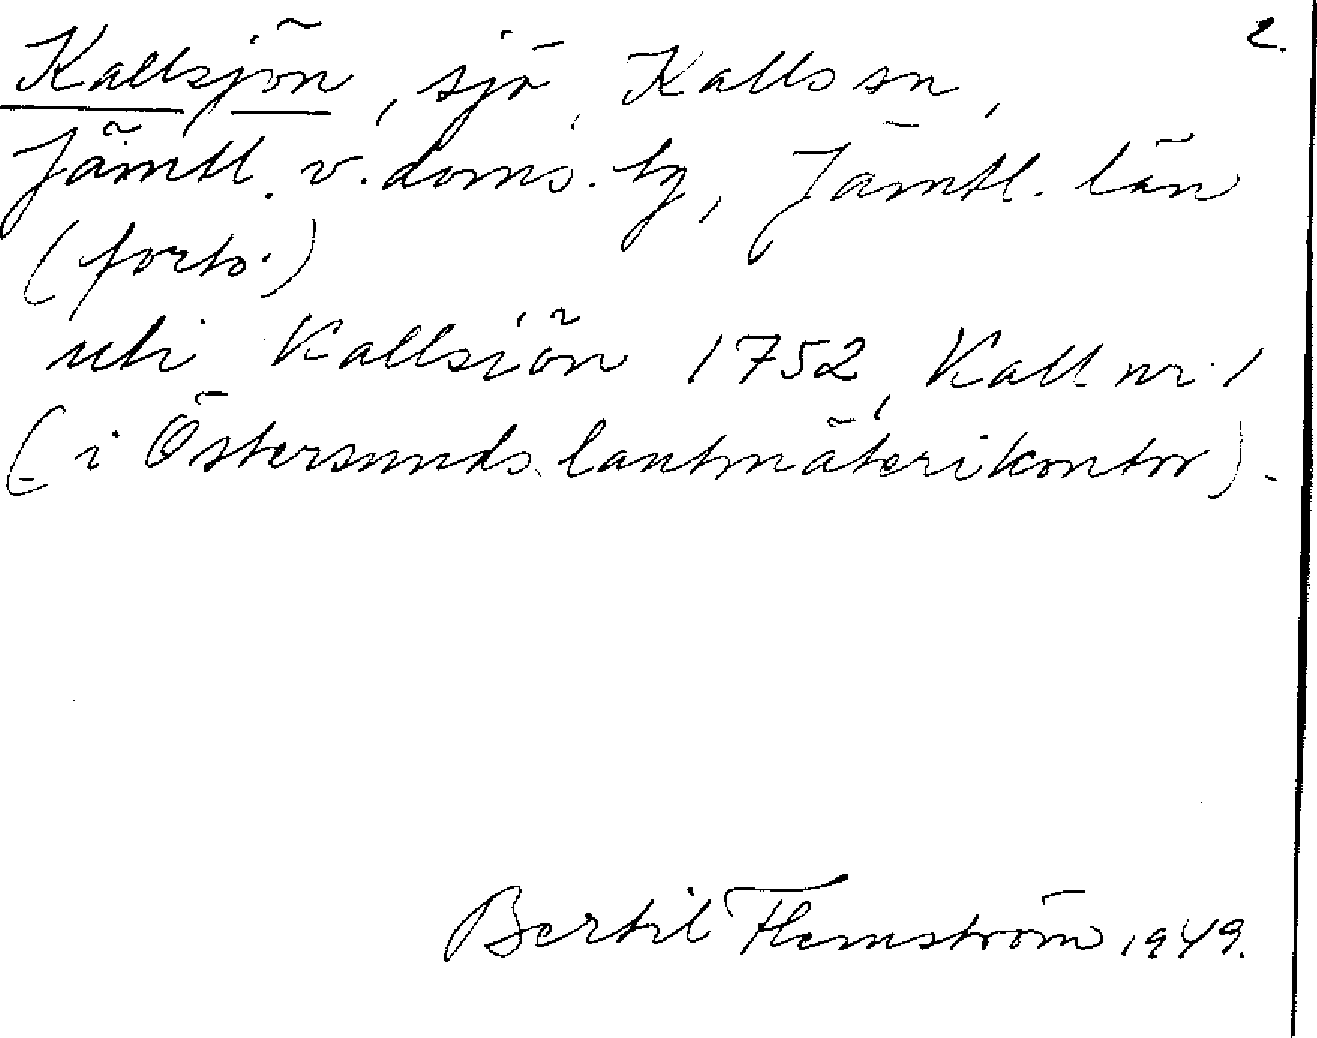 2.
Kallsjön, sjö, Kalls sn,
Jämtl. v. doms. tg, Jämtl. län
(forts.)
uti Kallsiön 1752, Kall nr. 1
(i Östersunds lantmäterikontor).
Bertil Flemström 1949.